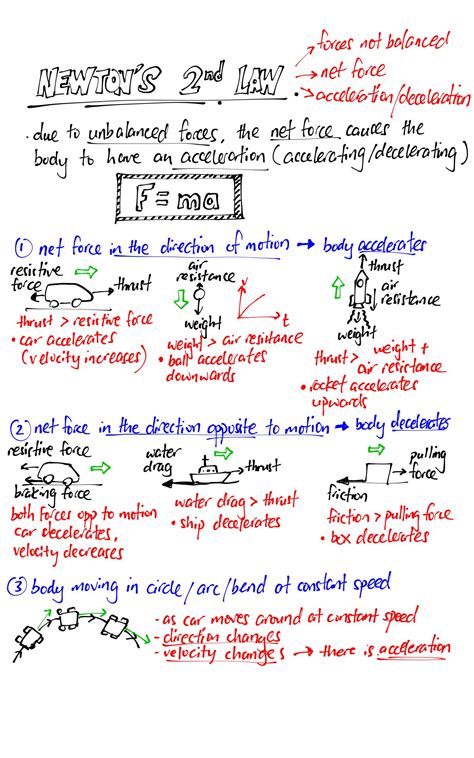 NEWTON'S 2nd LAW.
→ forces not balanced
→ net force
→ acceleration/deceleration
• due to unbalanced forces, the net force causes the
body to have an acceleration (accelerating/decelerating)
F = ma
① net force in the direction of motion → body accelerates
resistive force
thrust
thrust > resistive force
• car accelerates
(velocity increases)
air resistance
weight
v
t
weight > air resistance
• ball accelerates
downwards
thrust
air resistance
weight
thrust > weight + air resistance
• rocket accelerates
upwards
② net force in the direction opposite to motion → body decelerates
resistive force
braking force
both forces opp to motion
car decelerates,
velocity decreases
water drag
thrust
water drag > thrust
• ship decelerates
pulling force
friction
friction > pulling force
• box decelerates
③ body moving in circle/arc/bend at constant speed
- as car moves around at constant speed
- direction changes
- velocity changes → there is acceleration